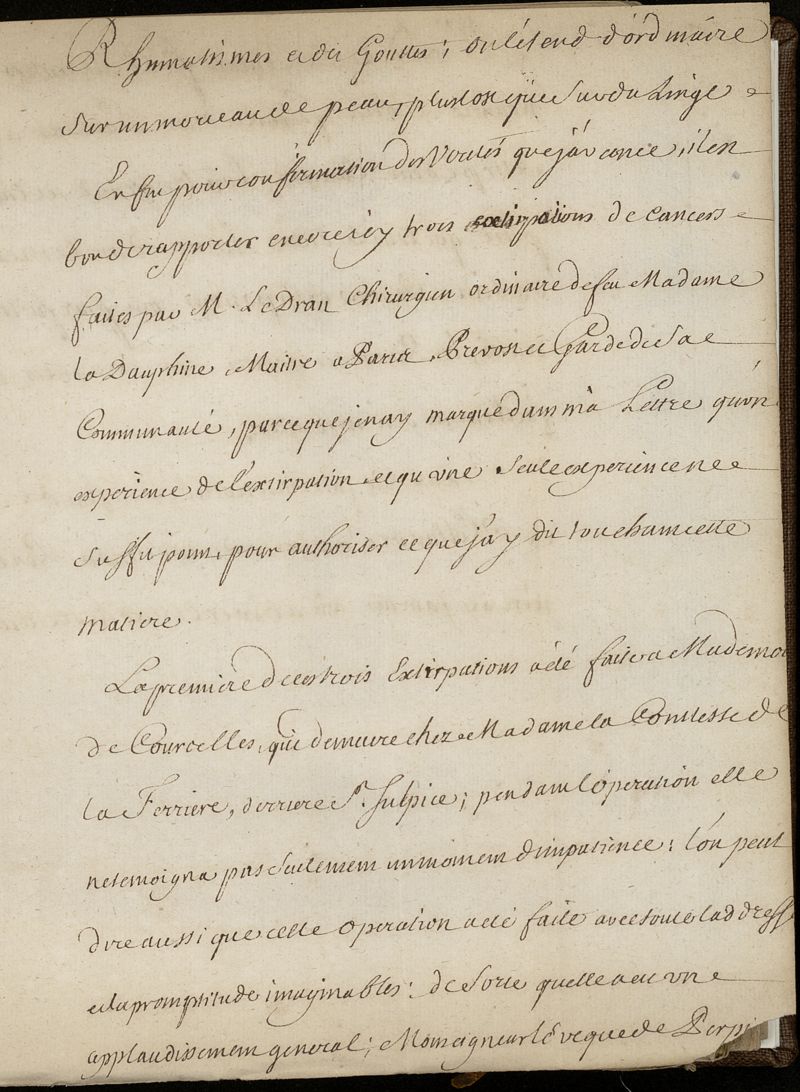 Rhumatismes et des Gouttes; on l'étend d'ordinaire
sur un morceau de peau, plustost que sur du Linge
Enfin pour confirmation des Verités que j'avance, il est
bon de rapporter encore icy trois extirpations de cancers
faites par M. Le Dran Chirurgien ordinaire de feu Madame
la Dauphine, Maitre a Paris, Prevost et Garde de sa
Communauté, parce que je n'ay marqué dans ma Lettre qu'vn
experience de l'extirpation, et qu'vne seule experience ne
suffit point, pour authoriser ce que j'ay dit touchant cette
matiere.
La premiere de ces trois Extirpations a été faite a Mademoi
de Courcelles, qui demeure chez Madame la Comtesse de
la Ferriere, derriere St. Sulpice; pendant l'operation elle
ne temoigna pas seulement un moment d'impatience: l'on peut
dire aussi que cette operation a eté faite avec toute l'addresse
et la promptitude imaginables: de sorte quelle a eu vne
applaudissement general; Monseigneur l'évêque de Perpi